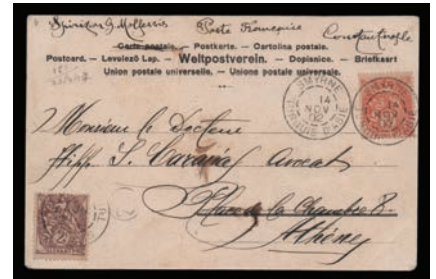 Poste Française Constantinople
Carte postale. — Postkarte. — Cartolina postale.
Postcard. — Levelező Lap. — Weltpostverein. — Dopisnice. — Briefkaart
Union postale universelle. — Unione postale universale.
SMYRNE
14
NOV
02
TURQUIE D'ASIE
SMYRNE
14
NOV
02
Monsieur le Docteur
S. Avocat
Place de la Chambre 8.
Athènes